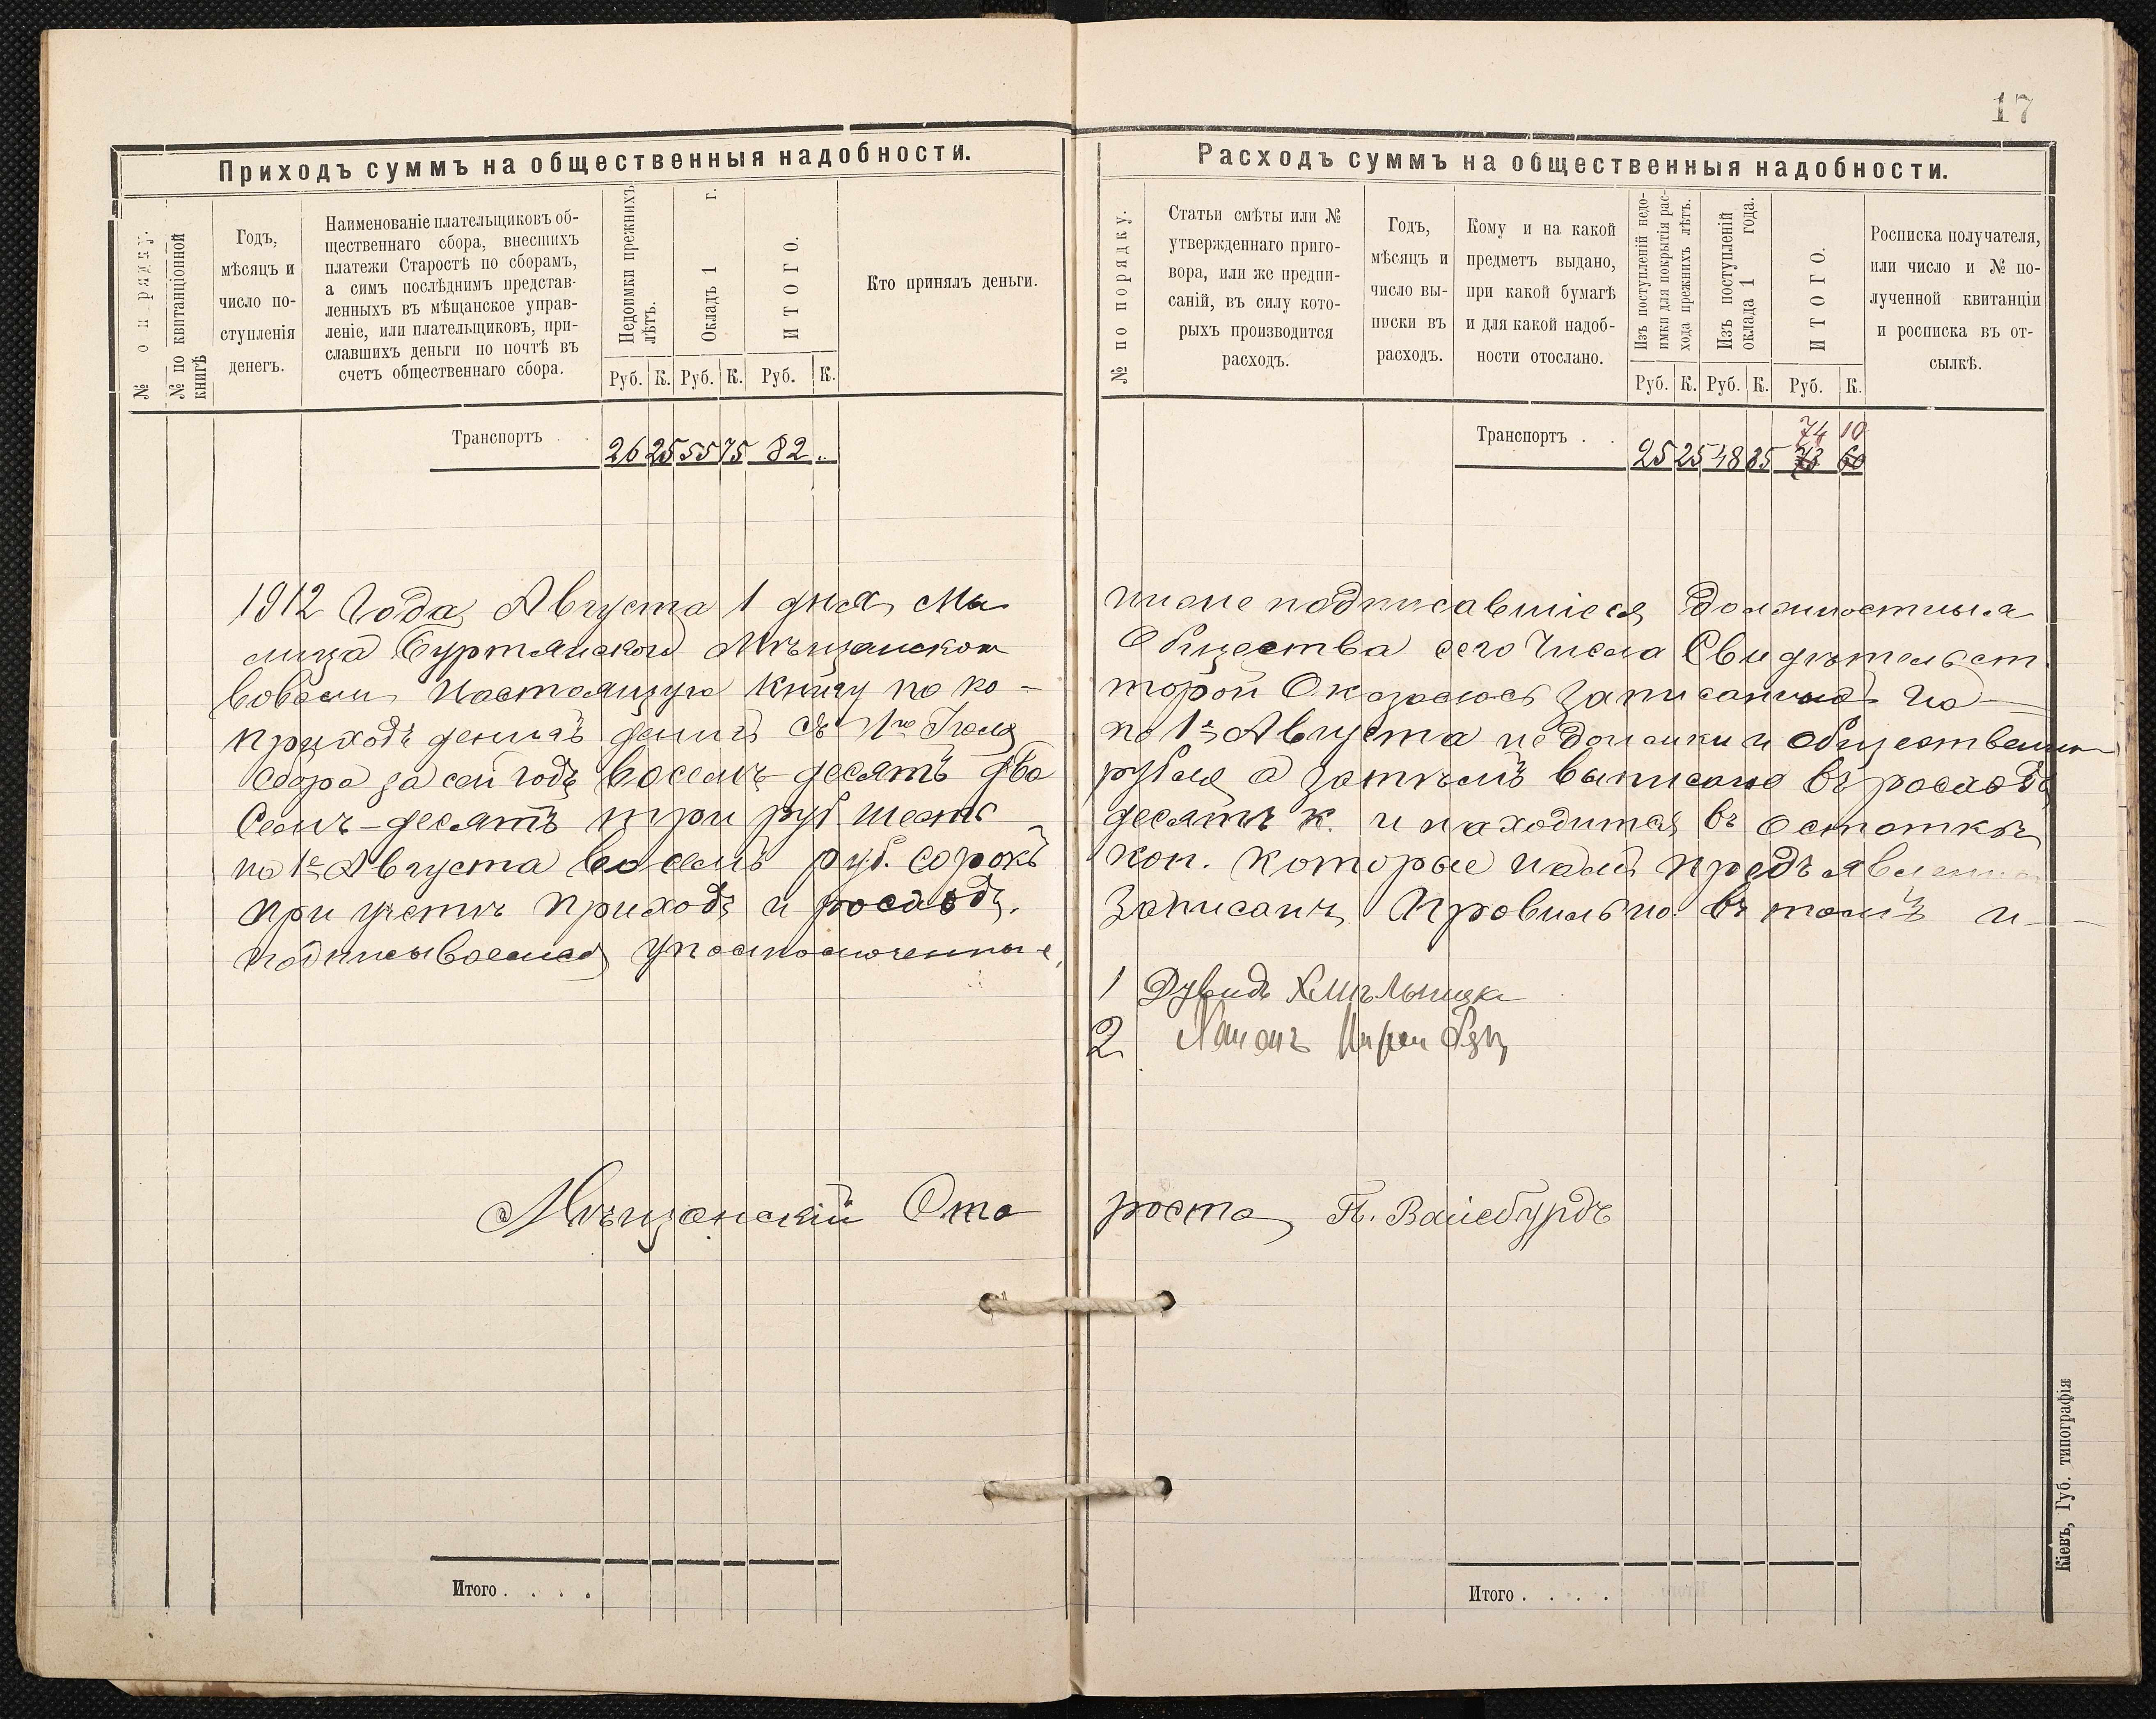 17
Приходъ суммъ на общественныя надобности.
№ по порядку.
№ по квитанціонной
книгѣ
Годъ,
мѣсяцъ и
число по-
ступленія
денегъ.
Наименованіе плательщиковъ об-
щественнаго сбора, внесшихъ
платежи Старостѣ по сборамъ,
а симъ послѣднимъ представ-
ленныхъ въ мѣщанское управ-
леніе, или плательщиковъ, при-
славшихъ деньги по почтѣ въ
счетъ общественнаго сбора.
Недоимки прежнихъ
лѣтъ.
Окладъ 1 г.
ИТОГО.
Кто принялъ деньги.
Руб. К. Руб. К. Руб. К.
Транспортъ . . 26 25 55 75 82 ..
1912 Года Августа 1 дня мы
лица Буртянскои Мѣщанскои
вовали Настоящую книгу по ко-
приходъ денигъ съ 1го Іюля
сбора за сей годъ восемъ-десятъ два
Семъ-десятъ три руб шесть
на 1е Августа восемъ руб. сорокъ
при учетѣ приходъ и росходъ.
подписываемся уполномоченные,
Мѣщанскій Ста
Итого . . . .
Расходъ суммъ на общественныя надобности.
№ по порядку.
Статьи смѣты или №
утвержденнаго приго-
вора, или же предпи-
саній, въ силу кото-
рыхъ производится
расходъ.
Годъ,
мѣсяцъ и
число вы-
писки въ
расходъ.
Кому и на какой
предметъ выдано,
при какой бумагѣ
и для какой надоб-
ности отослано.
Изъ поступленій недо-
имки для покрытія рас-
хода прежнихъ лѣтъ.
Изъ поступленій
оклада 1 года.
ИТОГО.
Росписка получателя,
или число и № по-
лученной квитанціи
и росписка въ от-
сылкѣ.
Руб. К. Руб. К. Руб. К.
74 10
Транспортъ . . 25 25 48 85 73 60
подписавшіеся должностныя
Общества сего Числа Свидѣтельст
торой Оказалось записаный на
по 1е Августа недоимки и общественно
рубля а затѣмъ выписано въ росходъ
десятъ к. и находится въ остаткѣ
коп. которые намъ предъявлены
Записанъ Провильно въ томъ и
1 Дувидъ
2
роста П. Вайсбурдъ
Итого . . . .
Кіевъ, Губ. типографія